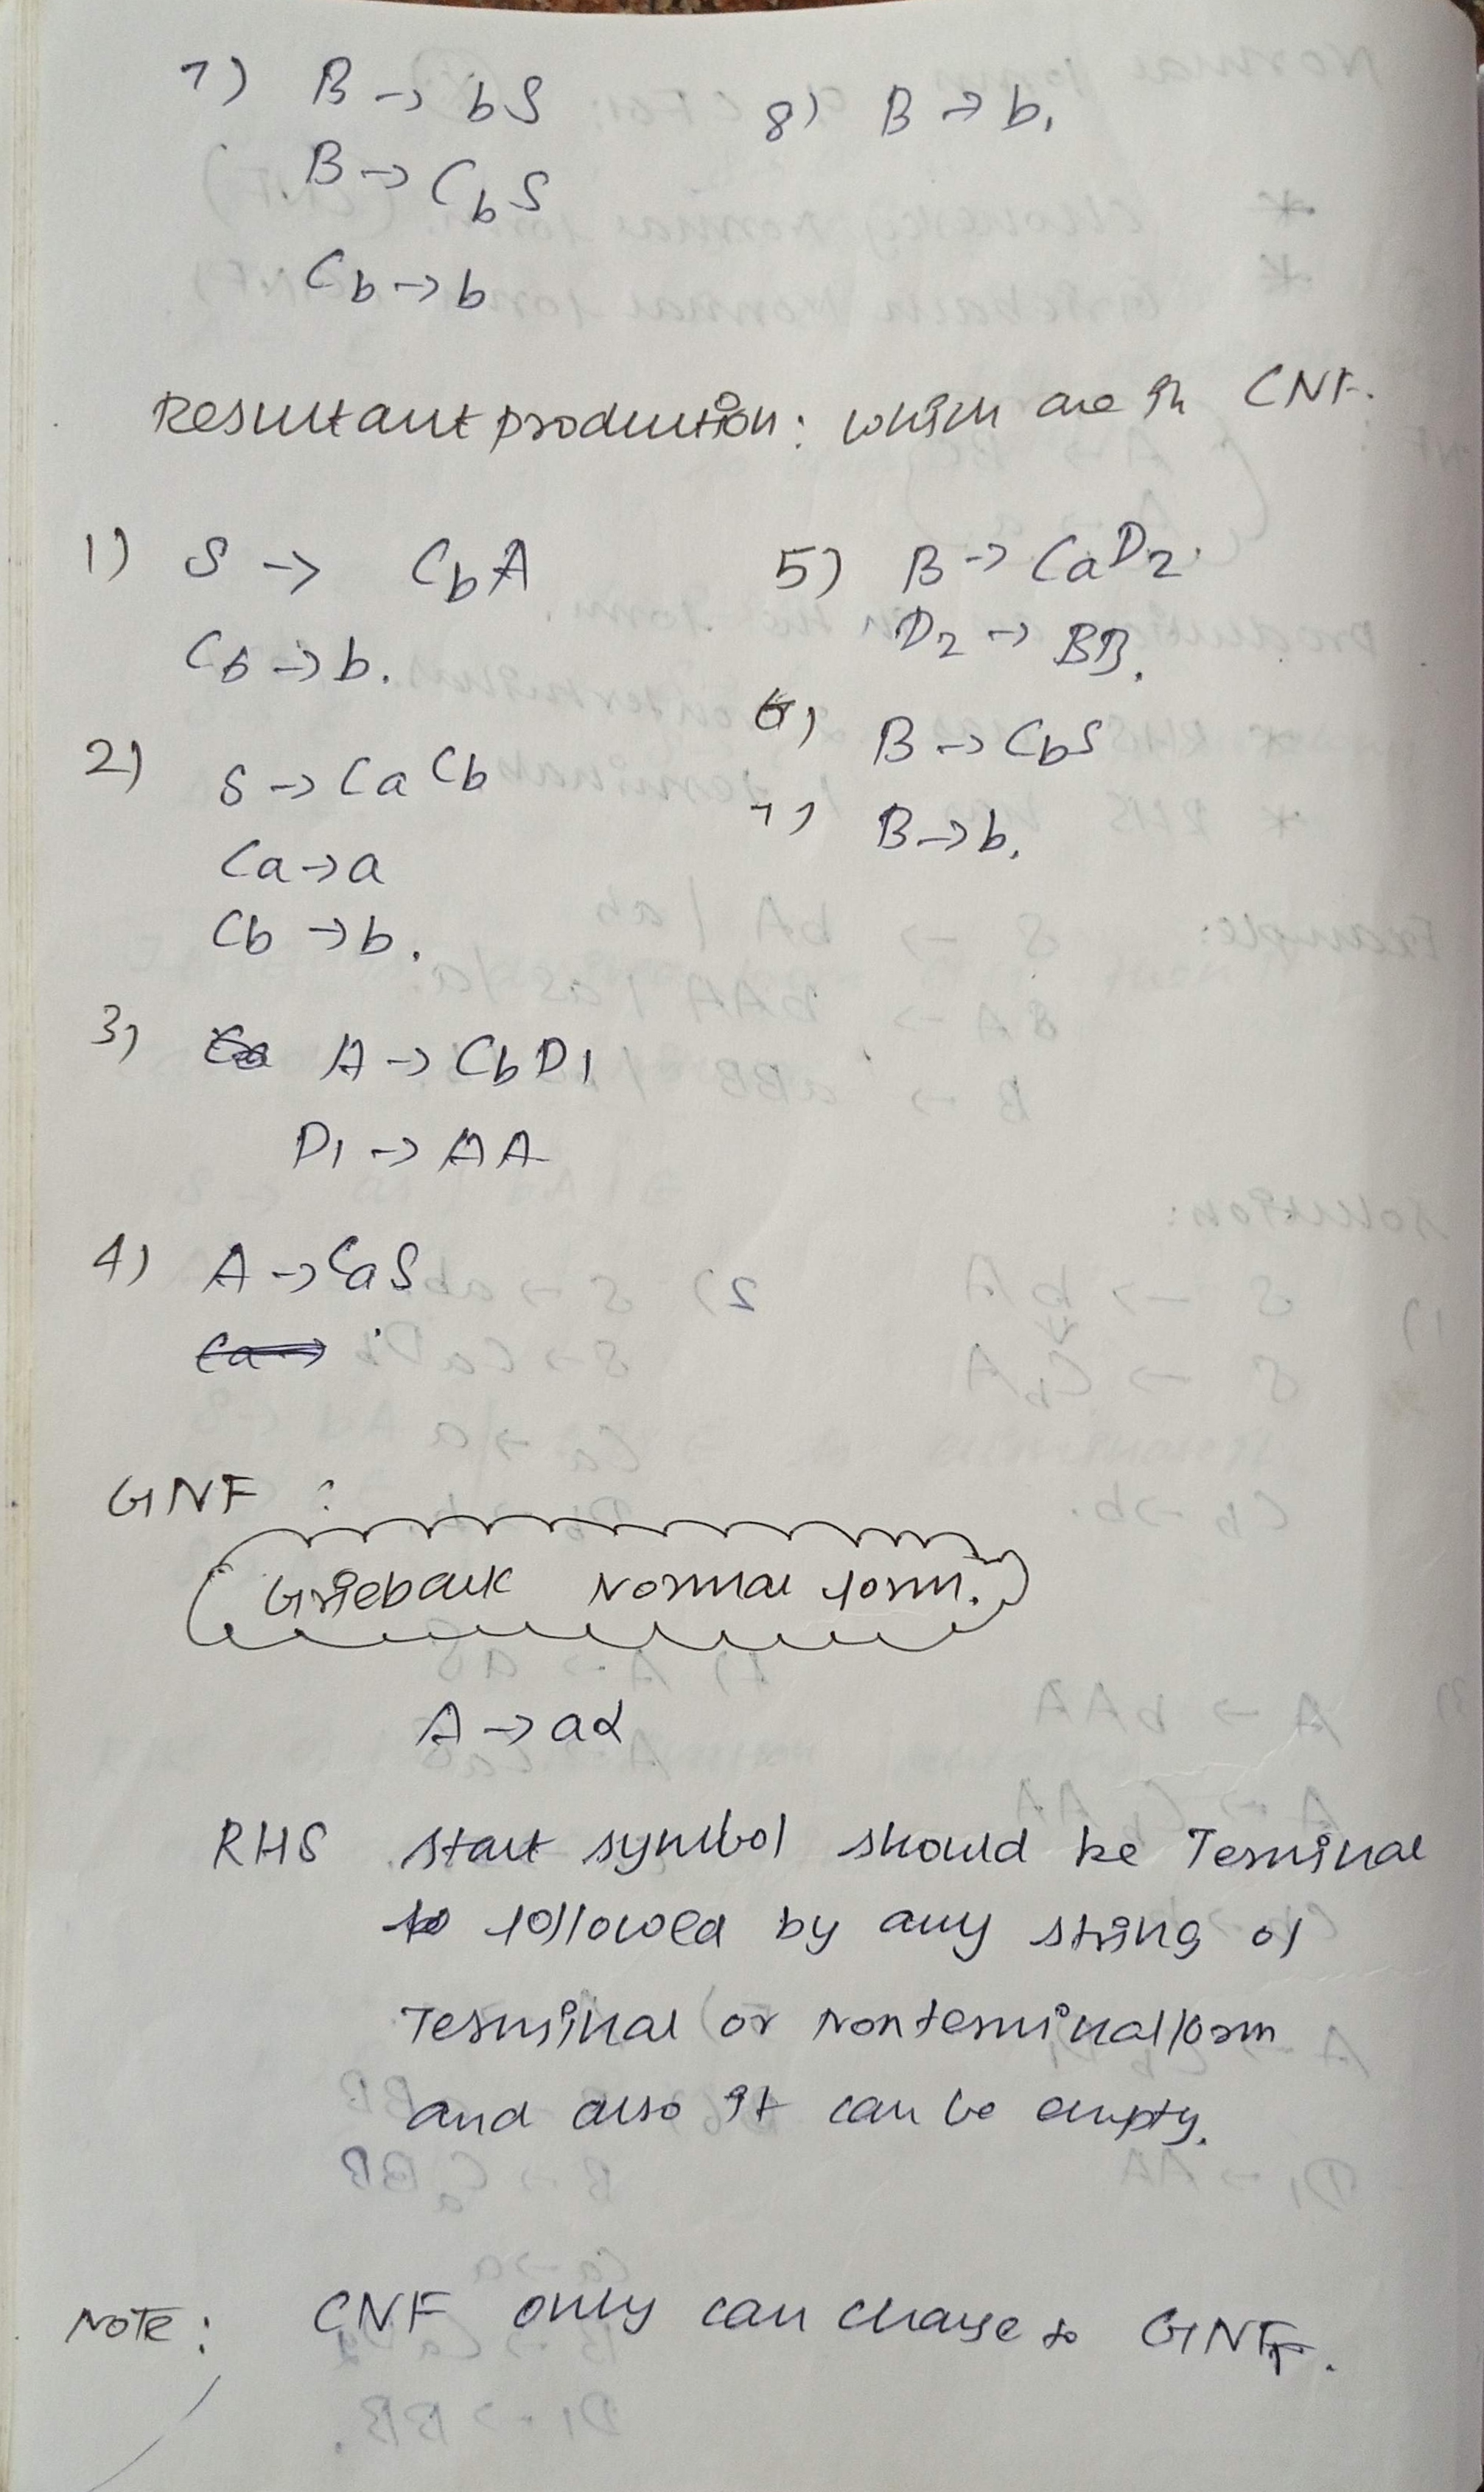 7) B → bS 8) B → b.
B → CbS
Cb → b
Resultant production: which are in CNF.
1) S → CbA
Cb → b.
2) S → Ca Cb
Ca → a
Cb → b.
3) A → CbD1
D1 → AA
4) A → CaS
5) B → CaD2.
D2 → BB.
6) B → CbS
7) B → b.
GNF :
Griebauk Normal form.
A → aα
RHS start symbol should be Terminal
followed by any string of
Terminal or Nonterminal form
and also it can be empty.
NOTE: CNF only can change to GNF.